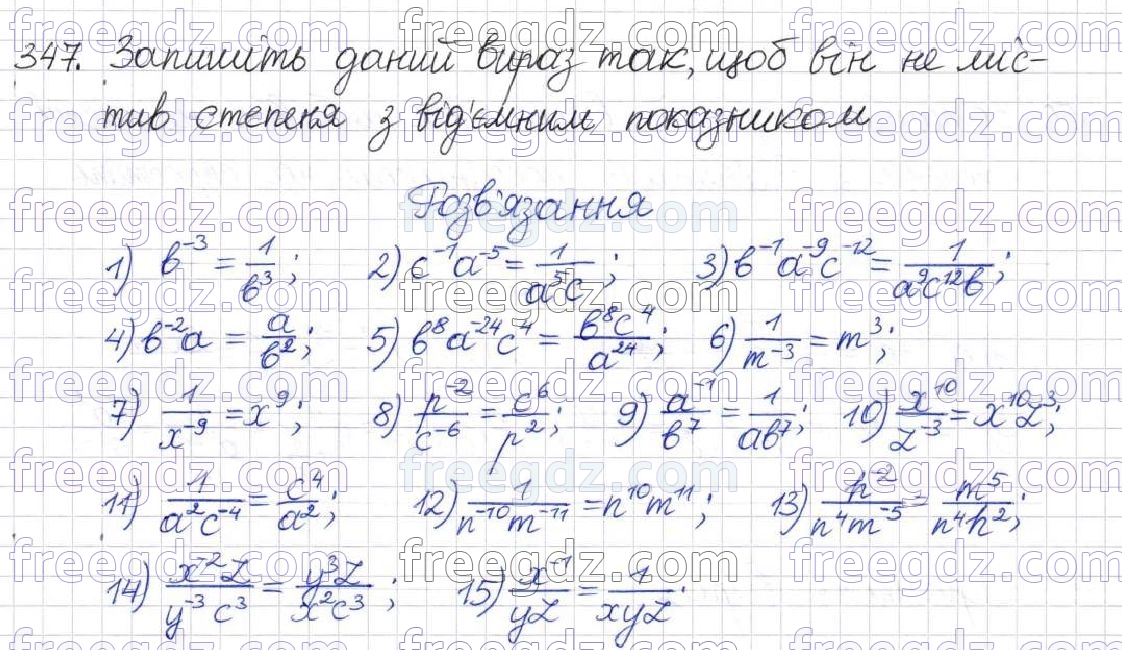 347. Запишіть даний вираз так, щоб він не міс-
тив степеня з від'ємним показником
Розв'язання
1) b⁻³ = 1/b³; 2) c⁻¹a⁻⁵ = 1/(a⁵c); 3) b⁻¹a⁻⁹c⁻¹² = 1/(a⁹c¹²b);
4) b⁻²a = a/b²; 5) b⁸a⁻²⁴c⁴ = b⁸c⁴/a²⁴; 6) 1/m⁻³ = m³;
7) 1/x⁻⁹ = x⁹; 8) p⁻²/c⁻⁶ = c⁶/p²; 9) a⁻¹/b⁷ = 1/(ab⁷); 10) x¹⁰/z⁻³ = x¹⁰z³;
11) 1/(a²c⁻⁴) = c⁴/a²; 12) 1/(n⁻¹⁰m⁻¹¹) = n¹⁰m¹¹; 13) k⁻²/(n⁴m⁻⁵) = m⁵/(n⁴k²);
14) x⁻²z/(y⁻³c³) = y³z/(x²c³); 15) x⁻¹/(yz) = 1/(xyz).